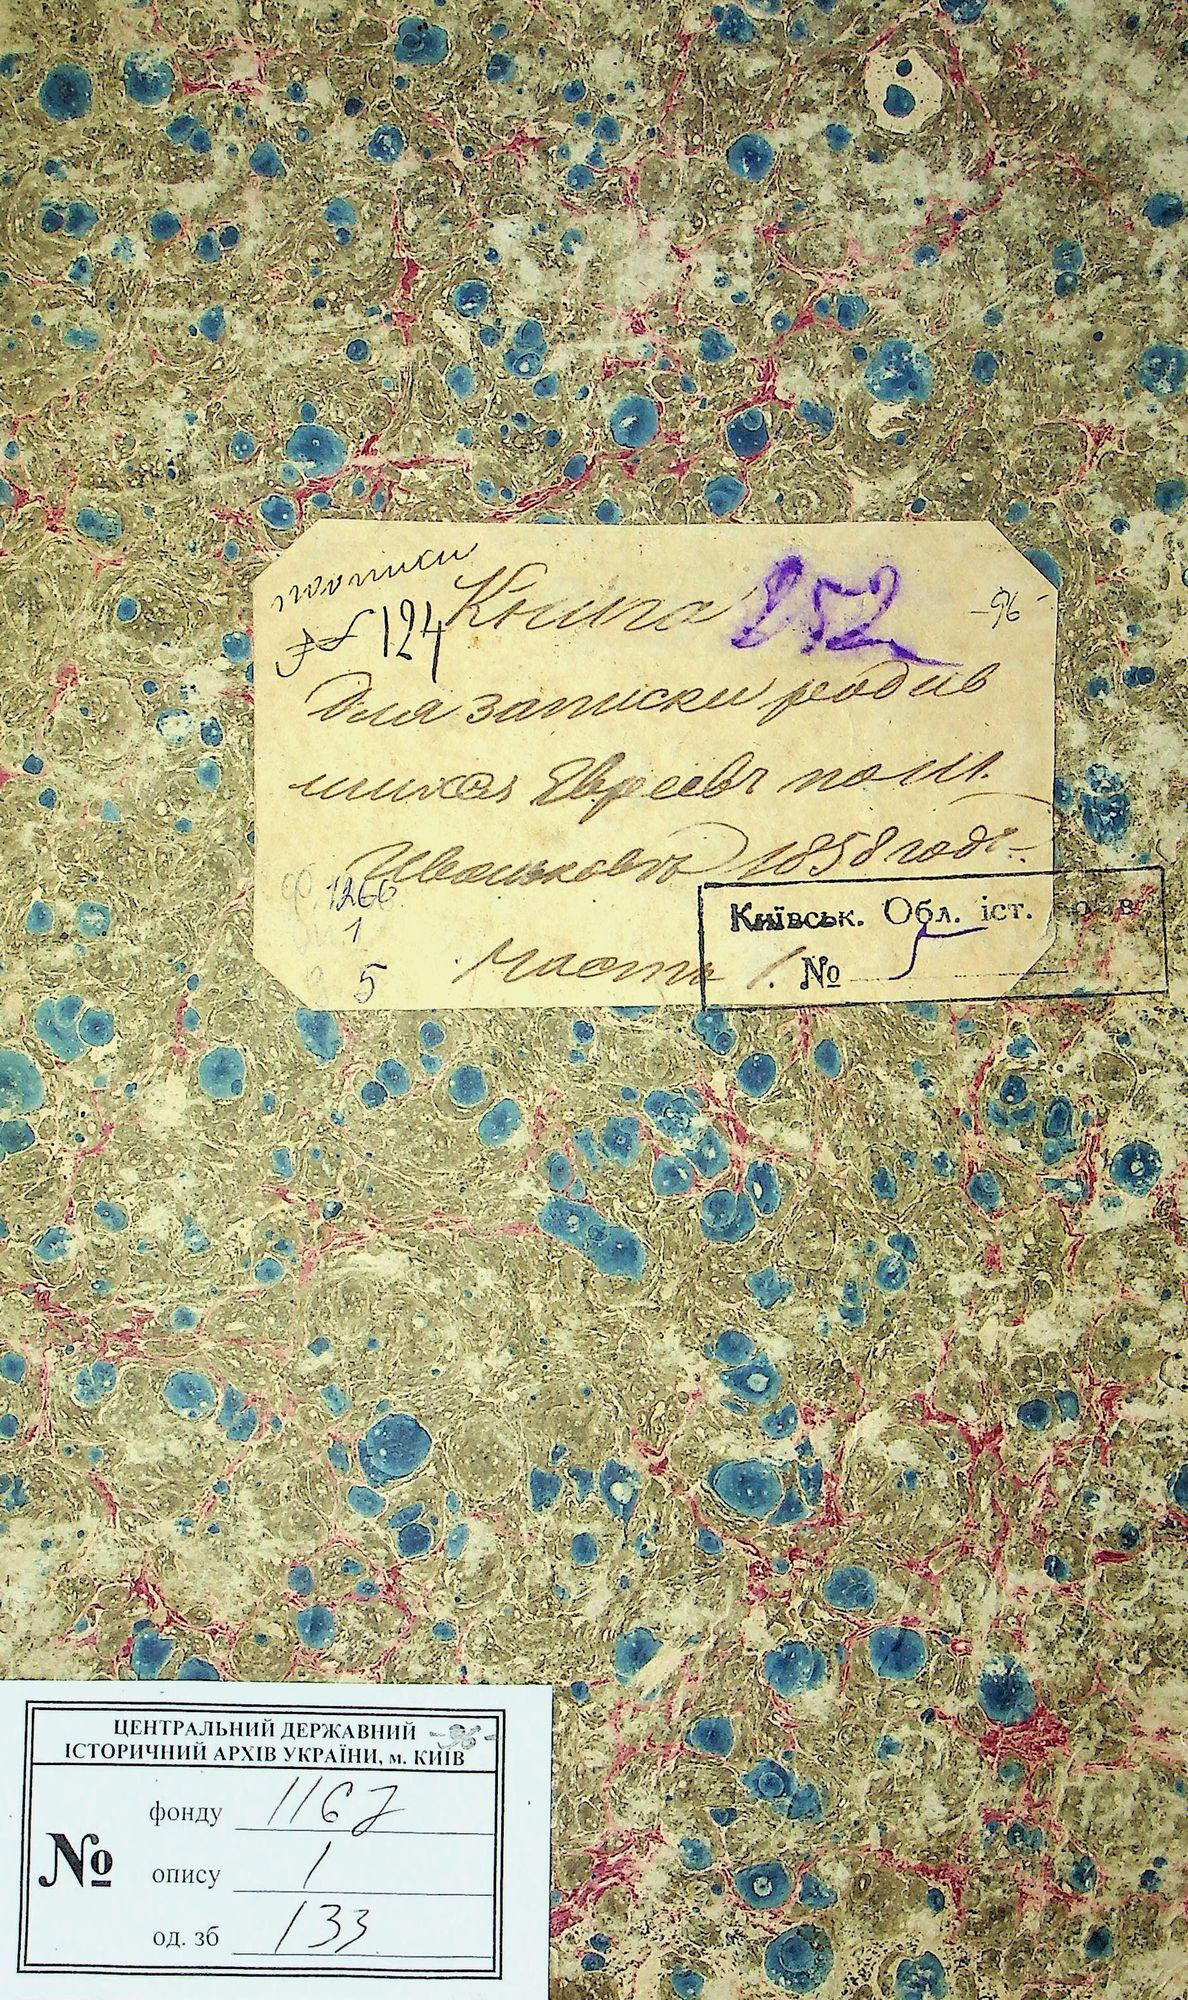 описи
№ 124 Книга 252 96
Для записки родив
шихся Евреевъ по м.
Иваньковъ 1858 годъ.
ф. 1266
1
5
Часть 1.
Київськ. Обл. іст.
№ 5
ЦЕНТРАЛЬНИЙ ДЕРЖАВНИЙ
ІСТОРИЧНИЙ АРХІВ УКРАЇНИ, м. КИЇВ
№
фонду 1167
опису 1
од. зб 133